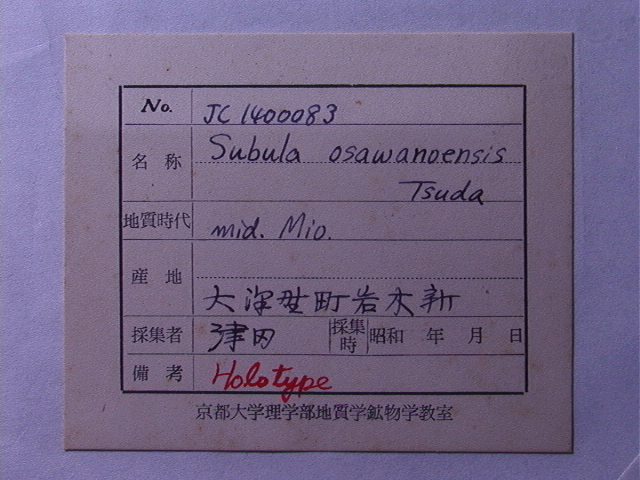 No. JC1400083
名称 Subula osawanoensis
Tsuda
地質時代 mid. Mio.
産地
大沢野町岩木新
採集者 津田 採集時 昭和 年 月 日
備考 Holotype
京都大学理学部地質学鉱物学教室